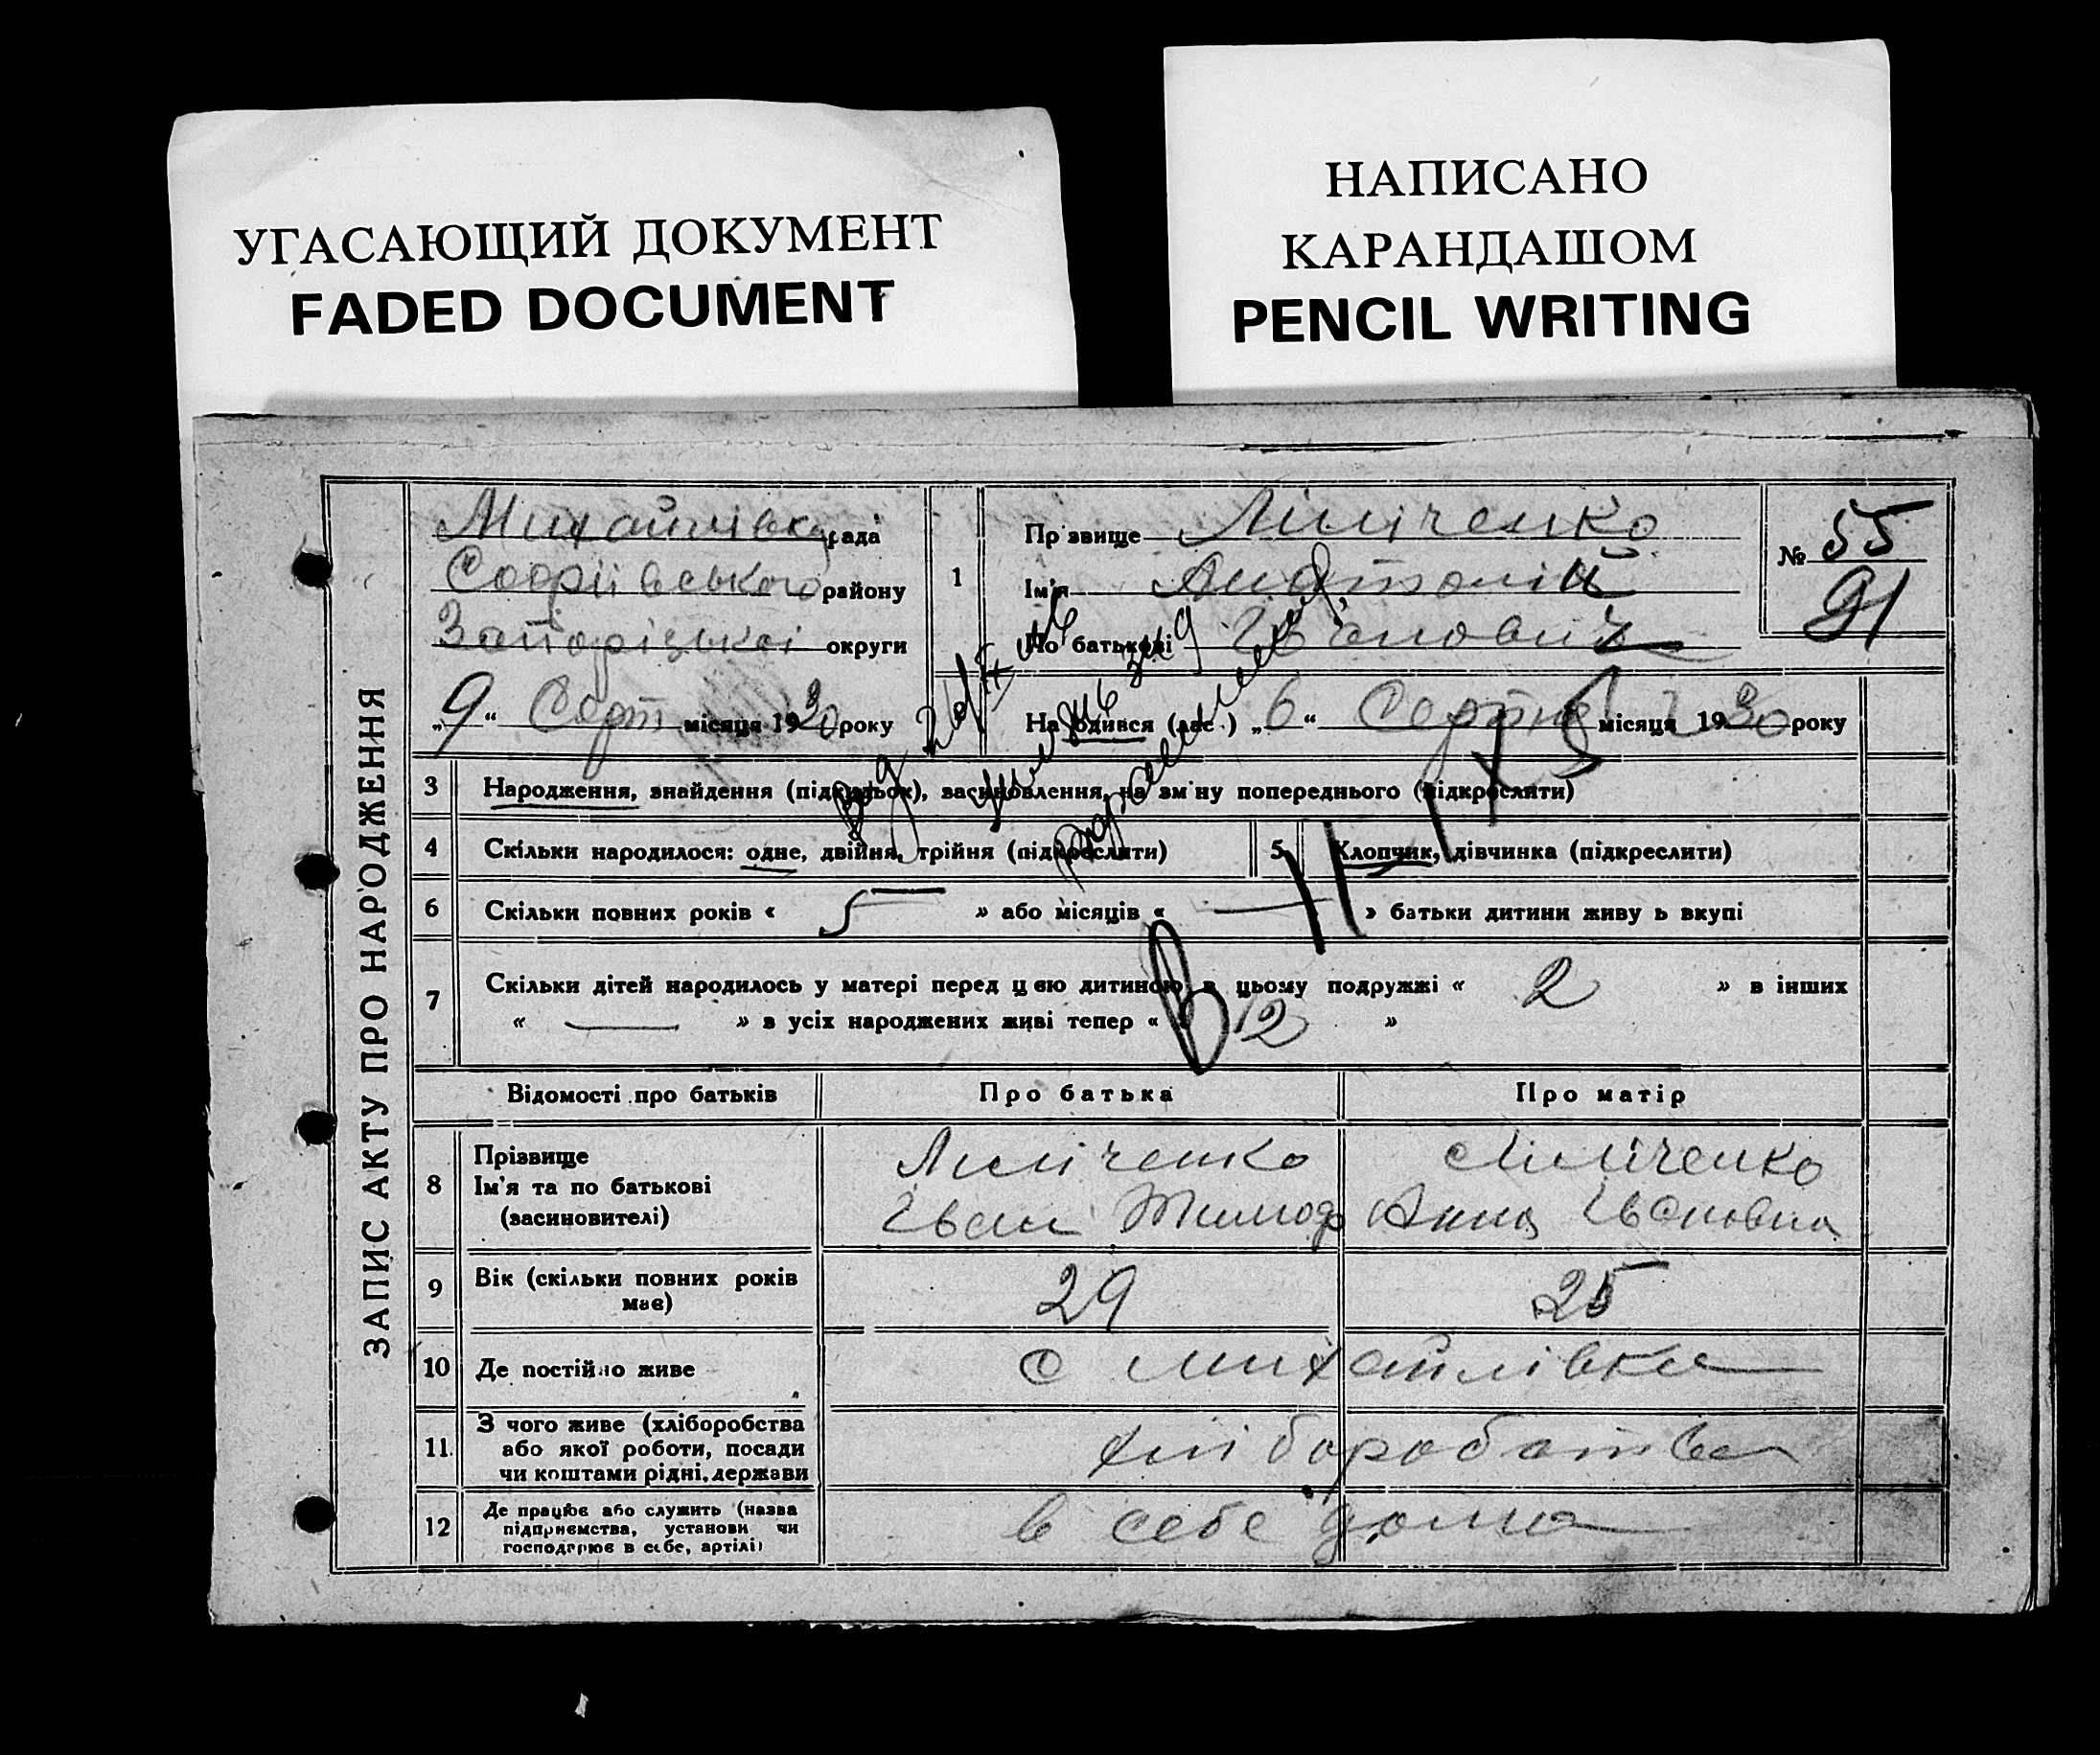 УГАСАЮЩИЙ ДОКУМЕНТ
FADED DOCUMENT
НАПИСАНО
КАРАНДАШОМ
PENCIL WRITING
ЗАПИС АКТУ ПРО НАРОДЖЕННЯ
Михайлівка рада
Софіївського району
Запорізької округи
„9“ Серп місяця 1930 року
1
Прізвище Лиліченко
Ім'я Анатолій
По батькові Іванович
№ 55
91
Народився (лась) „6“ Серпня місяця 1930 року
3 Народження, знайдення (підкидьок), засиновлення, на зміну попереднього (підкреслити)
4 Скільки народилося: одне, двійня, трійня (підкреслити)
5 Хлопчик, дівчинка (підкреслити)
6 Скільки повних років « 5 » або місяців « — » батьки дитини живуть вкупі
7 Скільки дітей народилось у матері перед цією дитиною в цьому подружжі « 2 » в інших
« — » в усіх народжених живі тепер « 2 »
Відомості про батьків Про батька Про матір
8 Прізвище
Ім'я та по батькові
(засиновителі)
Лиліченко
Іван Тимоф
Лиліченко
Анна Івановна
9 Вік (скільки повних років
має)
29 25
10 Де постійно живе с Михайлівка
11. З чого живе (хліборобства
або якої роботи, посади
чи коштами рідні, держави
хліборобства
12 Де працює або служить (назва
підприємства, установи чи
господарює в себе, артілі)
в себе дома